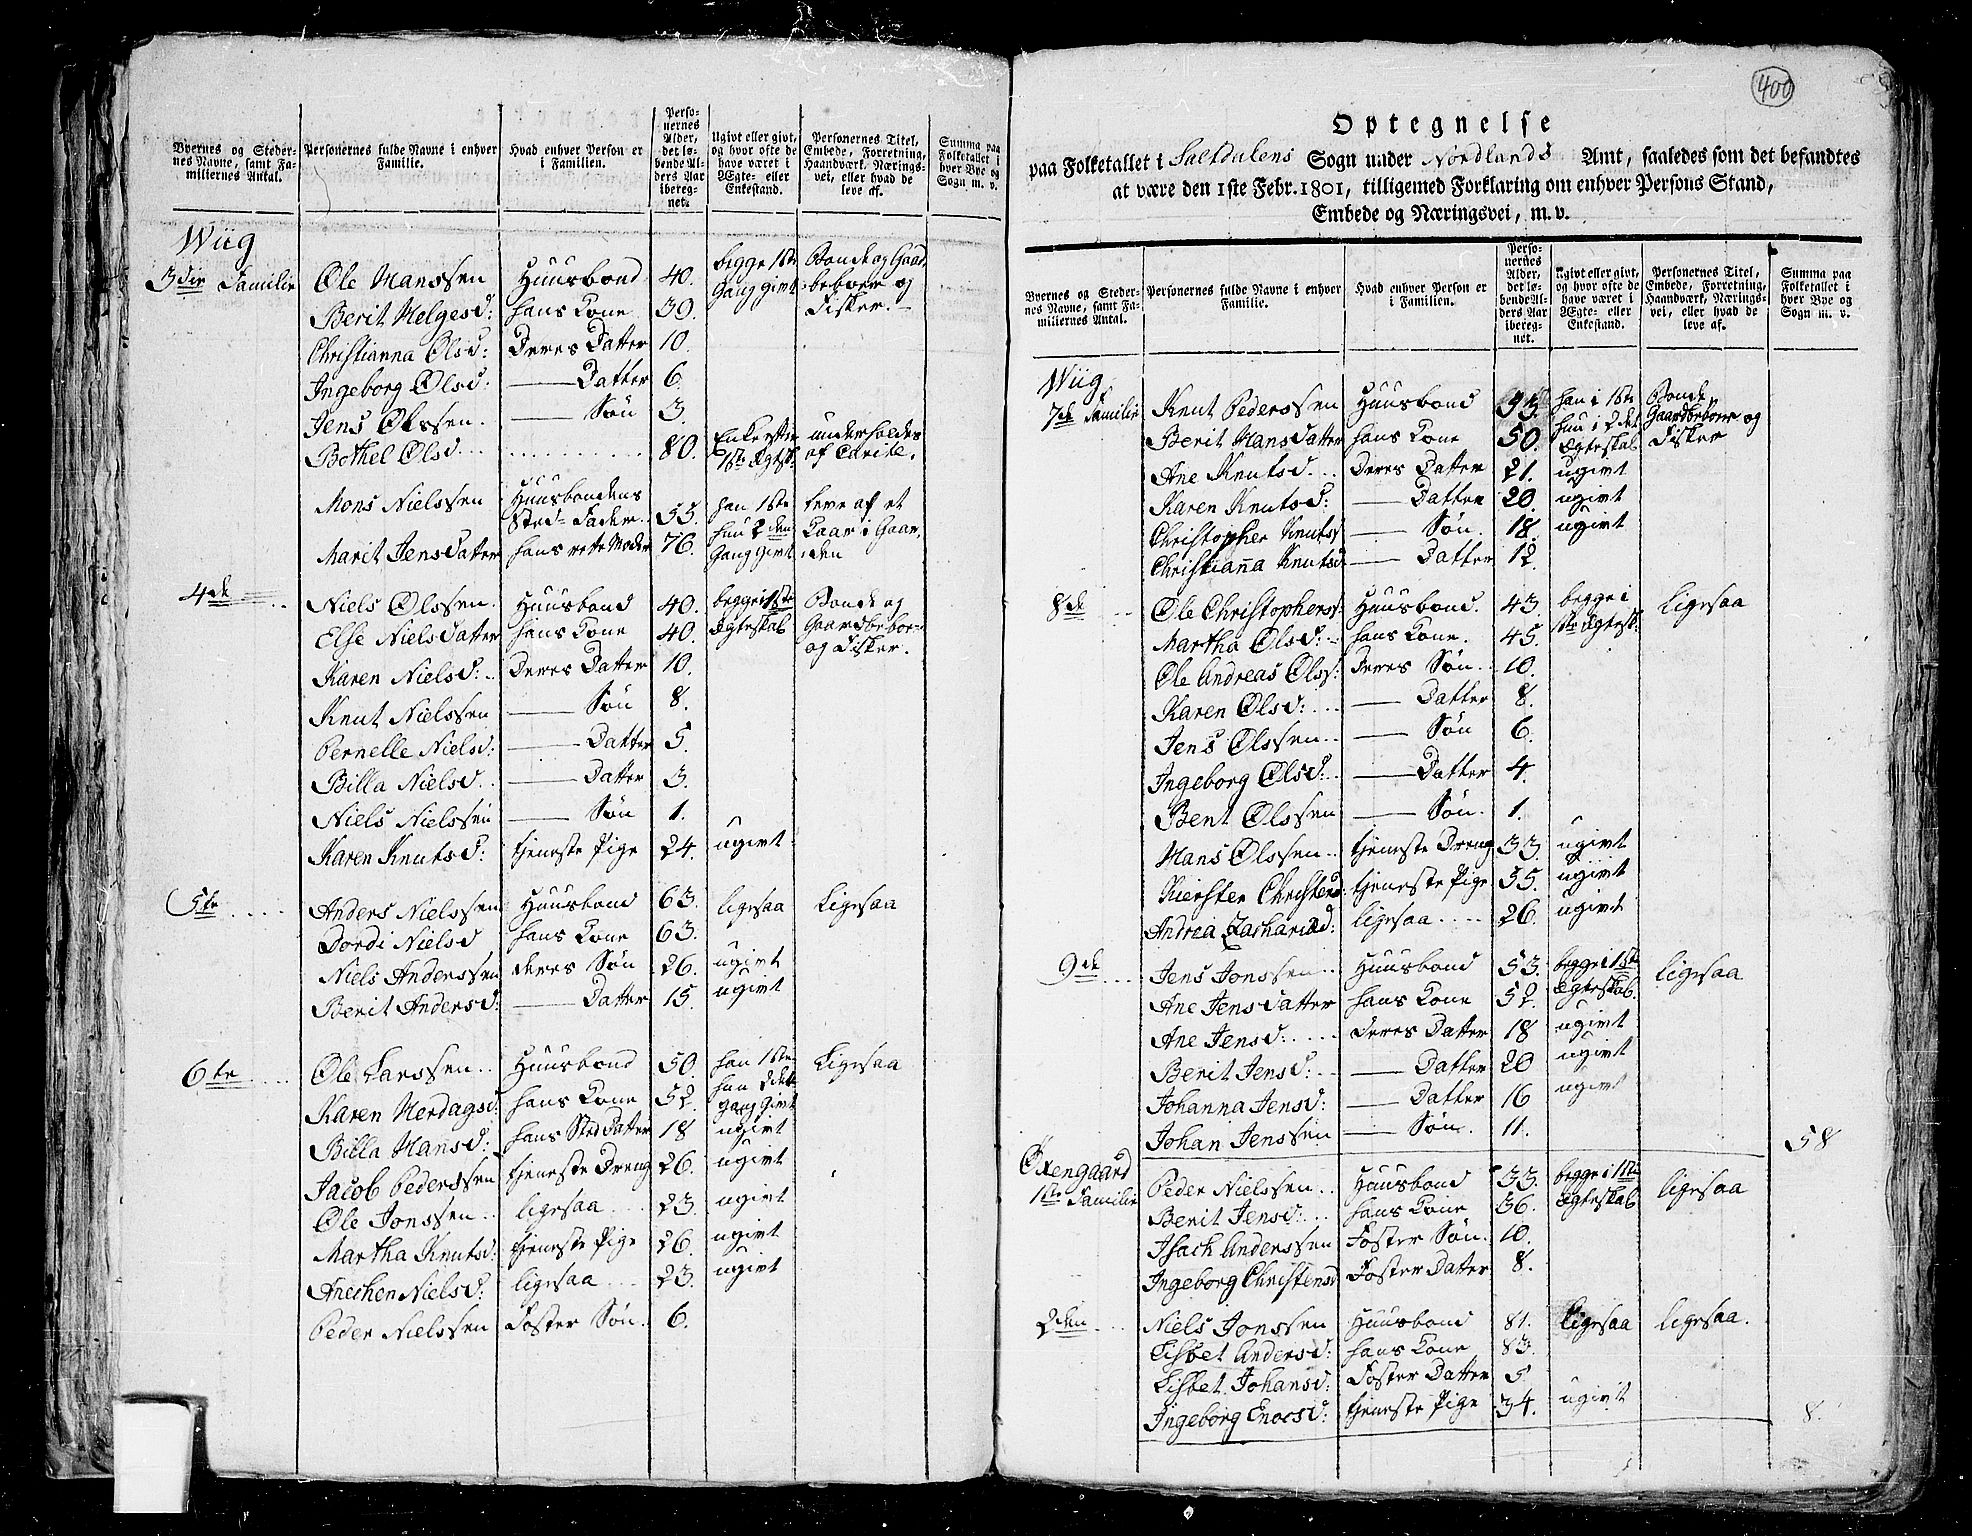 Byernes og Stedernes Navne, samt Familiernes Antal. | Personernes fulde Navne i enhver Familie. | Hvad enhver Person er i Familien. | Personernes Alder, det løbende Alders Aar iberegnet. | Ugivt eller givt, og hvor ofte de have været i Ægte- eller Enkestand. | Personernes Titel, Embede, Forretning, Haandværk, Næringsvei, eller hvad de leve af. | Summa paa Folketallet i hver Bye og Sogn m. v.
Wiig
3die Familie | Ole Hanssen | Huusbond | 40. | begge 1ste | Bonde og Gaard-
Berit Helgesd: | hans Kone | 39. | Gang givt | beboer og
Christianna Olsd: | Deres Datter | 10. | Fisker.
Ingeborg Olsd: | — Datter | 6.
Jens Olssen. | — Søn | 3.
Bothel Olsd... | 80. | Enke efter 1ste Ægtsk: | underholdes af Carite.
Mons Nielssen | Huusbondens Sted-Fader.. | 55. | han 1ste | leve af et
Marit Jensdatter | hans rette Moder | 76. | hun 2den Gang Givt | Kaar i Gaarden
4de | Niels Olssen. | Huusbond | 40. | begge i 1ste | Bonde og
Else Nielsdatter | hans Kone | 40. | Ægteskab | Gaardbeboer
Karen Nielsd:.. | Deres Datter | 10. | og Fisker.
Knut Nielssen | — Søn | 8.
Pernelle Nielsd: | — Datter | 5.
Billa Nielsd.. | — Datter | 3.
Niels Nielssen | — Søn | 1.
Karen Knutsd: | tjeneste Pige | 24. | ugivt
5te | Anders Nielssen | Huusbond | 63. | ligesaa | Ligesaa
Dordi Nielsd | hans Kone | 63.
Niels Anderssen | deres Søn | 26. | ugivt
Berit Andersd: | — Datter | 15. | ugivt
6te | Ole Larssen.. | Huusbond | 50. | han 1ste | Ligesaa
Karen Herdagsd: | hans Kone | 52. | hun 2det gang Givt
Billa Hansd: | hans Sted Datter | 18 | ugivt
Jacob Pederssen | tjeneste Dreng | 26. | ugivt
Ole Jonssen.. | ligesaa | 23. | ugivt
Martha Knutsd: | tjeneste Pige | 26. | ugivt
Anechen Nielsd: | ligesaa | 23. | ugivt
Peder Nielssen | Foster Søn.. | 6.
400
Optegnelse
paa Folketallet i Saltdalens Sogn under Nordlands Amt, saaledes som det befandtes
at være den 1ste Febr. 1801, tilligemed Forklaring om enhver Persons Stand,
Embede og Næringsvei, m. v.
Byernes og Stedernes Navne, samt Familiernes Antal. | Personernes fulde Navne i enhver Familie. | Hvad enhver Person er i Familien. | Personernes Alder, det løbende Alders Aar iberegnet. | Ugivt eller givt, og hvor ofte de have været i Ægte- eller Enkestand. | Personernes Titel, Embede, Forretning, Haandværk, Næringsvei, eller hvad de leve af. | Summa paa Folketallet i hver Bye og Sogn m. v.
Wiig
7de Familie | Knut Pederssen | Huusbond | han i 1ste | Bonde
Berit Hansdatter | hans Kone | 50. | hun i 2det Ægteskab | Gaardbeboer og Fisker
Ane Knutsd... | Deres Datter | 21. | ugivt
Karen Knutsd: | — Datter | 20. | ugivt
Christopher Knuts | — Søn. | 18. | ugivt
Christianna Knutsd | — Datter | 12.
8de | Ole Christophers: | Huusbond. | 43. | begge i | Ligesaa
Martha Olsd:.. | hans Kone. | 45. | 1ste Ægtesk:
Ole Andreas Olss: | Deres Søn.. | 10.
Karen Olsd:... | — Datter | 8.
Jens Olssen.. | — Søn | 6.
Ingeborg Olsd:.. | — Datter | 4.
Bent Olssen | — Søn. | 1.
Hans Olssen.. | tjeneste Dreng | 33. | ugivt
Kiersten Christensd: | tjeneste Pige | 55. | ugivt
Andrea Zachariæd: | ligesaa.... | 26. | ugivt
9de | Jens Jonssen.. | Huusbond | 53. | begge i 1ste | Ligesaa
Ane Jensdatter | hans Kone | 52. | Ægteskab.
Ane Jensd:.... | Deres Datter | 18 | ugivt
Berit Jensd:.. | — Datter | 20 | ugivt
Johanna Jensd: | — Datter | 16 | ugivt
Johan Jenssen | — Søn. | 11.
58
Øxengaard
1ste Familie | Peder Nielssen.. | Huusbond | 33. | begge i 1ste | Ligesaa
Berit Jensd:... | hans Kone | 36. | Ægteskab
Isach Anderssen | Foster Søn. | 10.
Ingeborg Christensd | Foster Datter | 8.
2den | Niels Jonssen | Huusbond | 81. | Ligesaa | ligesaa.
Lisbet Andersd: | hans Kone | 83.
Lisbet Johansd: | Foster Datter | 5
Ingeborg Enocsd: | tjeneste Pige | 34. | ugivt
8.